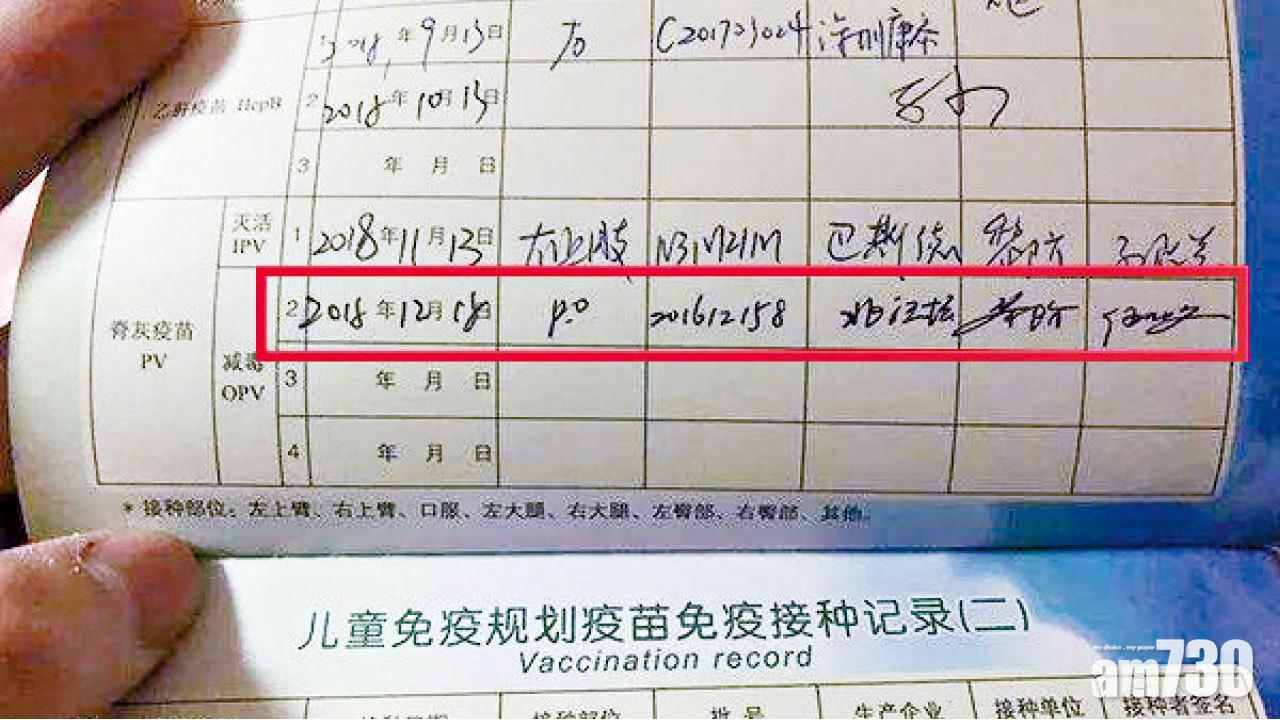 1 年9月13日 右 C201723024 深圳康泰
乙肝疫苗 HepB 2 2018年10月13日
3 年 月 日
脊灰疫苗 PV 灭活 IPV 1 2018年11月13日 N3M21M 巴斯德
减毒 OPV 2 2018年12月18日 p.o 201612158
3 年 月 日
4 年 月 日
* 接种部位：左上臂、右上臂、口服、左大腿、右大腿、左臀部、右臀部、其他。
儿童免疫规划疫苗免疫接种记录(二)
Vaccination record
my choice . my paper
am730
接种日期 接种部位 批 号 生产企业 接种单位 接种者签名